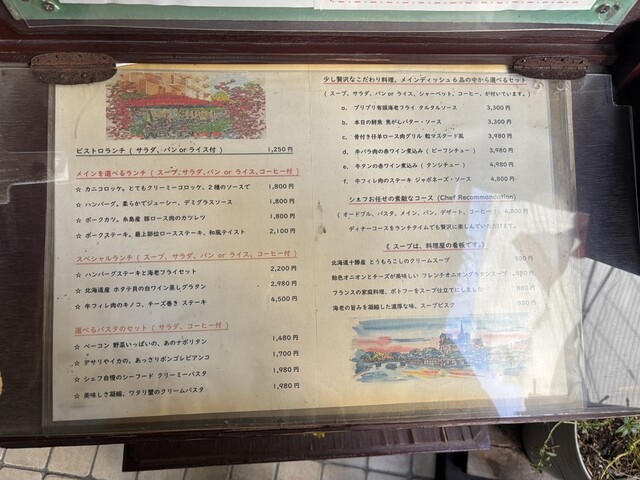 ビストロランチ ( サラダ、パン or ライス付 ) 1,250 円
メインを選べるランチ ( スープ、サラダ、パン or ライス、コーヒー付 )
☆ カニコロッケ。とてもクリーミーコロッケ、2 種のソースで 1,800 円
☆ ハンバーグ。柔らかてジューシー、デミグラスソース 1,800 円
☆ ポークカツ。糸島産 豚ロース肉のカツレツ 1,800 円
☆ ポークステーキ。最上部位ロースステーキ、和風テイスト 2,100 円
スペシャルランチ ( スープ、サラダ、パン or ライス、コーヒー付 )
☆ ハンバーグステーキと海老フライセット 2,200 円
☆ 北海道産 ホタテ貝の白ワイン蒸しグラタン 2,980 円
☆ 牛フィレ肉のキノコ、チーズ巻き ステーキ 4,500 円
選べるパスタのセット ( サラダ、コーヒー付 )
☆ ベーコン 野菜いっぱいの、あのナポリタン 1,480 円
☆ アサリやイカの。あっさりボンゴレビアンコ 1,700 円
☆ シェフ自慢のシーフード クリーミーパスタ 1,980 円
☆ 美味しさ凝縮、ワタリ蟹のクリームパスタ 1,980 円
少し贅沢なこだわり料理、メインディッシュ 6 品の中から選べるセット
( スープ、サラダ、パン or ライス、シャーベット、コーヒー、が付いています。)
a. プリプリ有頭海老フライ タルタルソース 3,300 円
b. 本日の鮮魚 焦がしバター・ソース 3,300 円
c. 骨付き仔羊ロース肉グリル 粒マスタード風 3,980 円
d. 牛バラ肉の赤ワイン煮込み ( ビーフシチュー ) 3,980 円
e. 牛タンの赤ワイン煮込み ( タンシチュー ) 4,980 円
f. 牛フィレ肉のステーキ ジャポネーズ・ソース 4,800 円
シェフお任せの素敵なコース (Chef Recommendation)
( オードブル、パスタ、メイン、パン、デザート、コーヒー ) 4,800 円
ディナーコースをランチタイムでも贅沢に楽しんでいただけます。
《 スープは、料理屋の看板です。》
北海道十勝産 とうもろこしのクリームスープ
飴色オニオンとチーズが美味しい フレンチオニオングラタンスープ
フランスの家庭料理、ポトフーをスープ仕立てにしました
海老の旨みを凝縮した濃厚な味、スープビスク